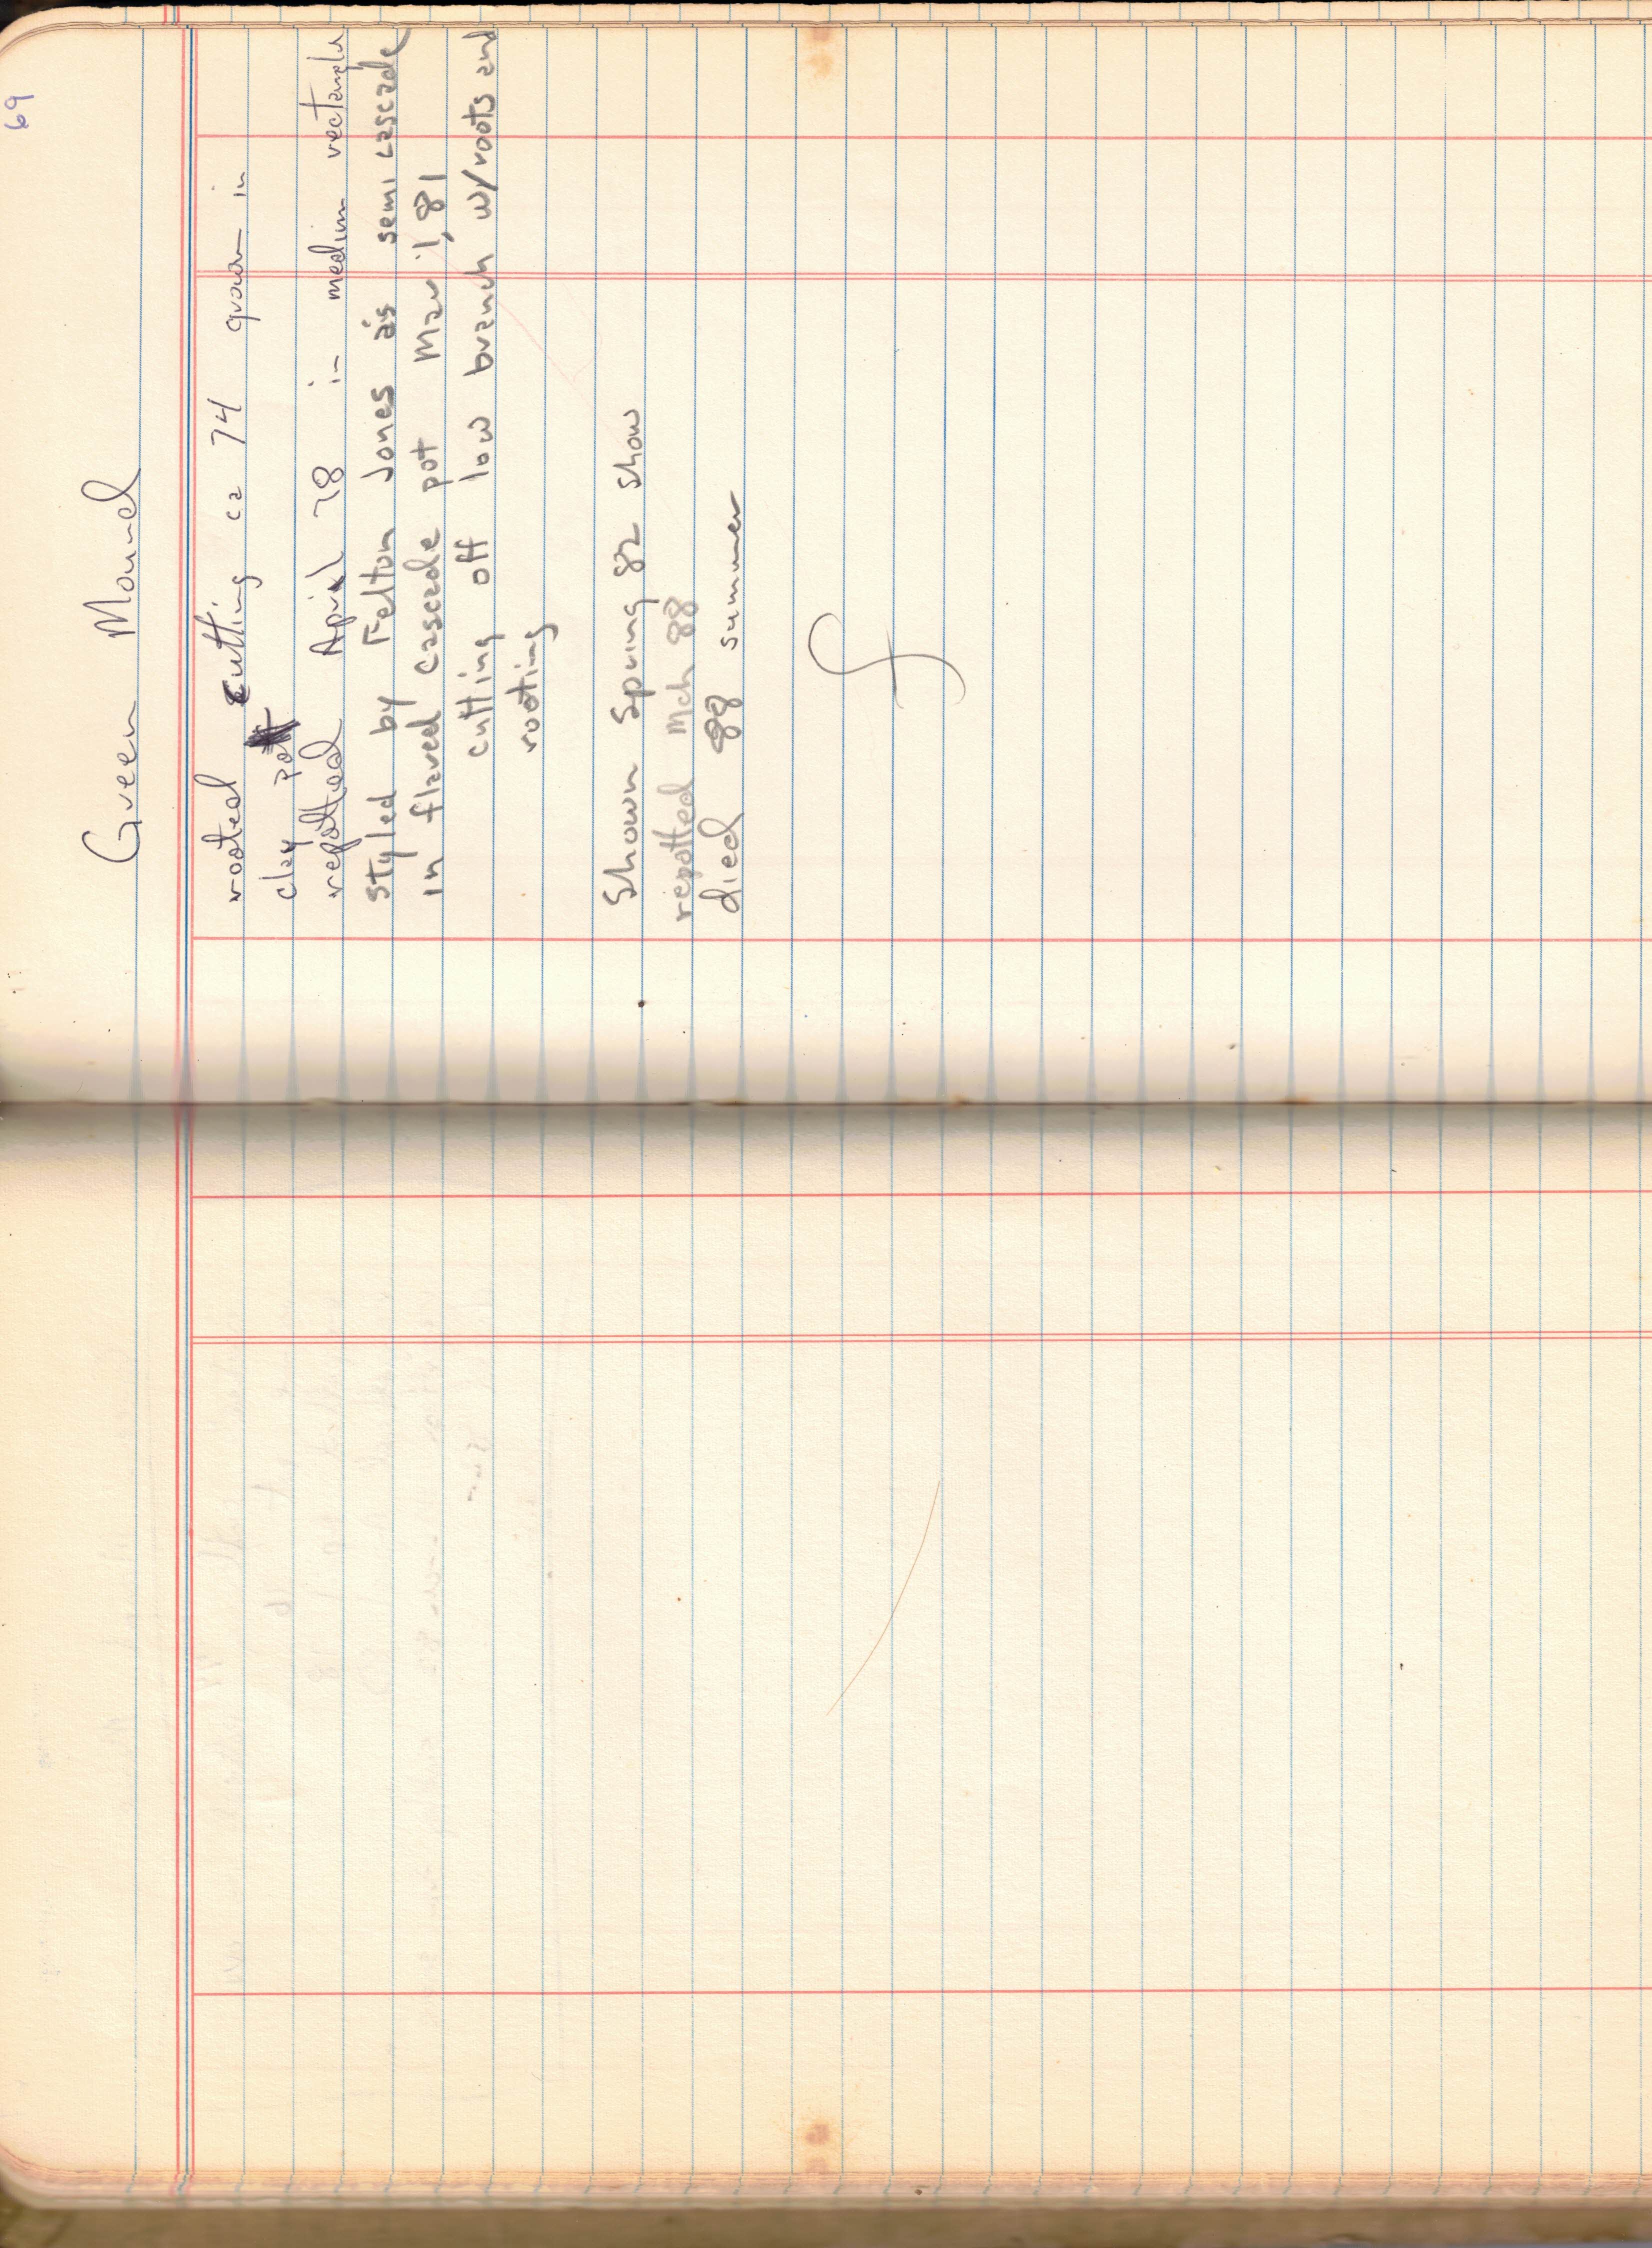 69
Green Mound
rooted cutting ca 74 grown in
clay pot
repotted April 78 in medium rectangle
styled by Felton Jones as semi cascade
in flared cascade pot Mar 1, 81
cutting off low branch w/roots and
rooting
Shown Spring 82 show
repotted Mch 88
died 88 summer